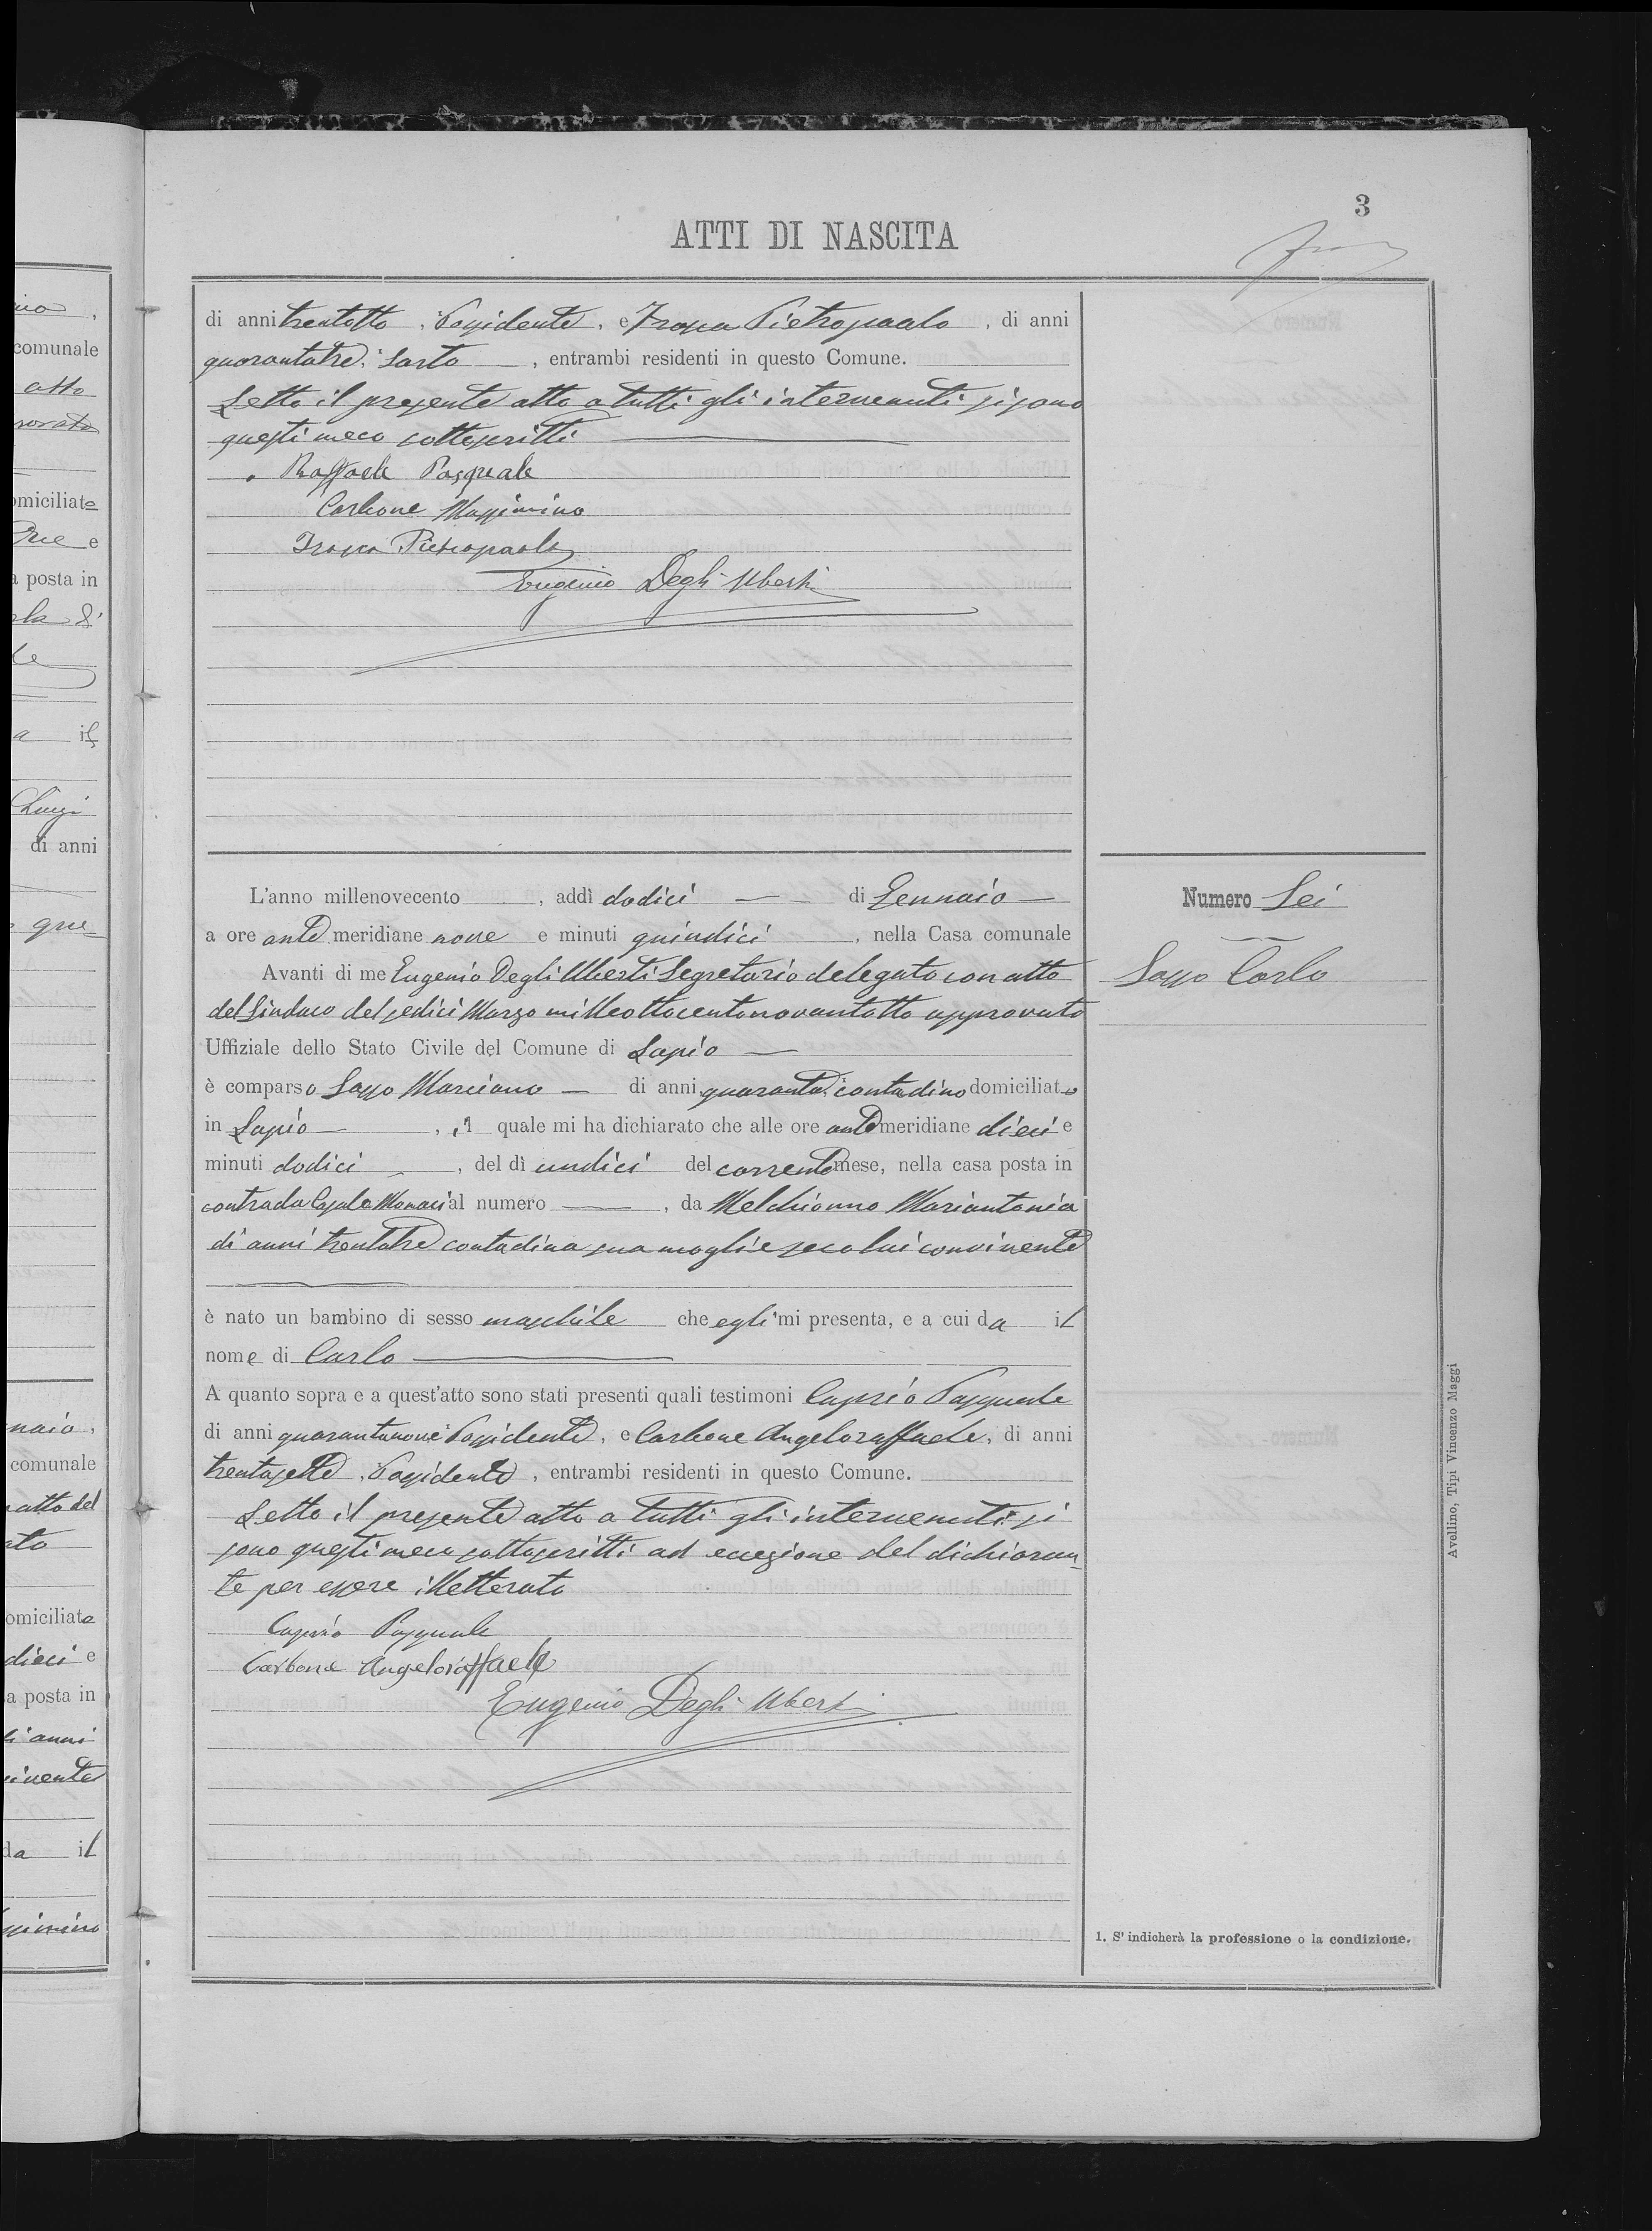 3
ATTI DI NASCITA
di anni trentotto, Possidente, e Troysa Pietropaolo, di anni
quarantatre, Sarto, entrambi residenti in questo Comune.
Letto il presente atto a tutti gli intervenuti si sono
questi meco sottoscritti
Raffaele Pasquale
Carbone Massimino
Pietropaolo
Eugenio Degli Uberti
L'anno millenovecento, addì dodici di Gennaio
a ore ante meridiane nove e minuti quindici, nella Casa comunale
Avanti di me Eugenio Degli Uberti Segretario delegato con atto
del Sindaco del sedici Marzo milleottocentonovantotto approvato
Uffiziale dello Stato Civile del Comune di Lapio
è comparso Sasso Marciano di anni quaranta, contadino domiciliato
in Lapio, il quale mi ha dichiarato che alle ore ante meridiane dieci e
minuti dodici, del dì undici del corrente mese, nella casa posta in
contrada Casale Monaci al numero, da Melchionno Mariantonia
di anni trentatre contadina sua moglie seco lui convivente
è nato un bambino di sesso maschile che egli mi presenta, e a cui da il
nome di Carlo
A quanto sopra e a quest'atto sono stati presenti quali testimoni Caprio Pasquale
di anni quarantanove Possidente, e Carbone Angeloraffaele, di anni
trentasette, Possidente, entrambi residenti in questo Comune.
Letto il presente atto a tutti gli intervenuti si
sono questi meco sottoscritti ad eccezione del dichiaran-
te per essere illetterato
Caprio Pasquale
Carbone Angeloraffaele
Eugenio Degli Uberti
Numero Sei
Sasso Carlo
1. S' indicherà la professione o la condizione.
Avellino, Tipi Vincenzo Maggi